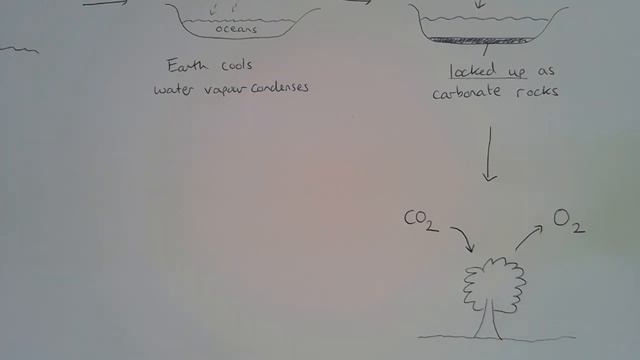 oceans
Earth cools
water vapour condenses
locked up as
carbonate rocks
CO2
O2